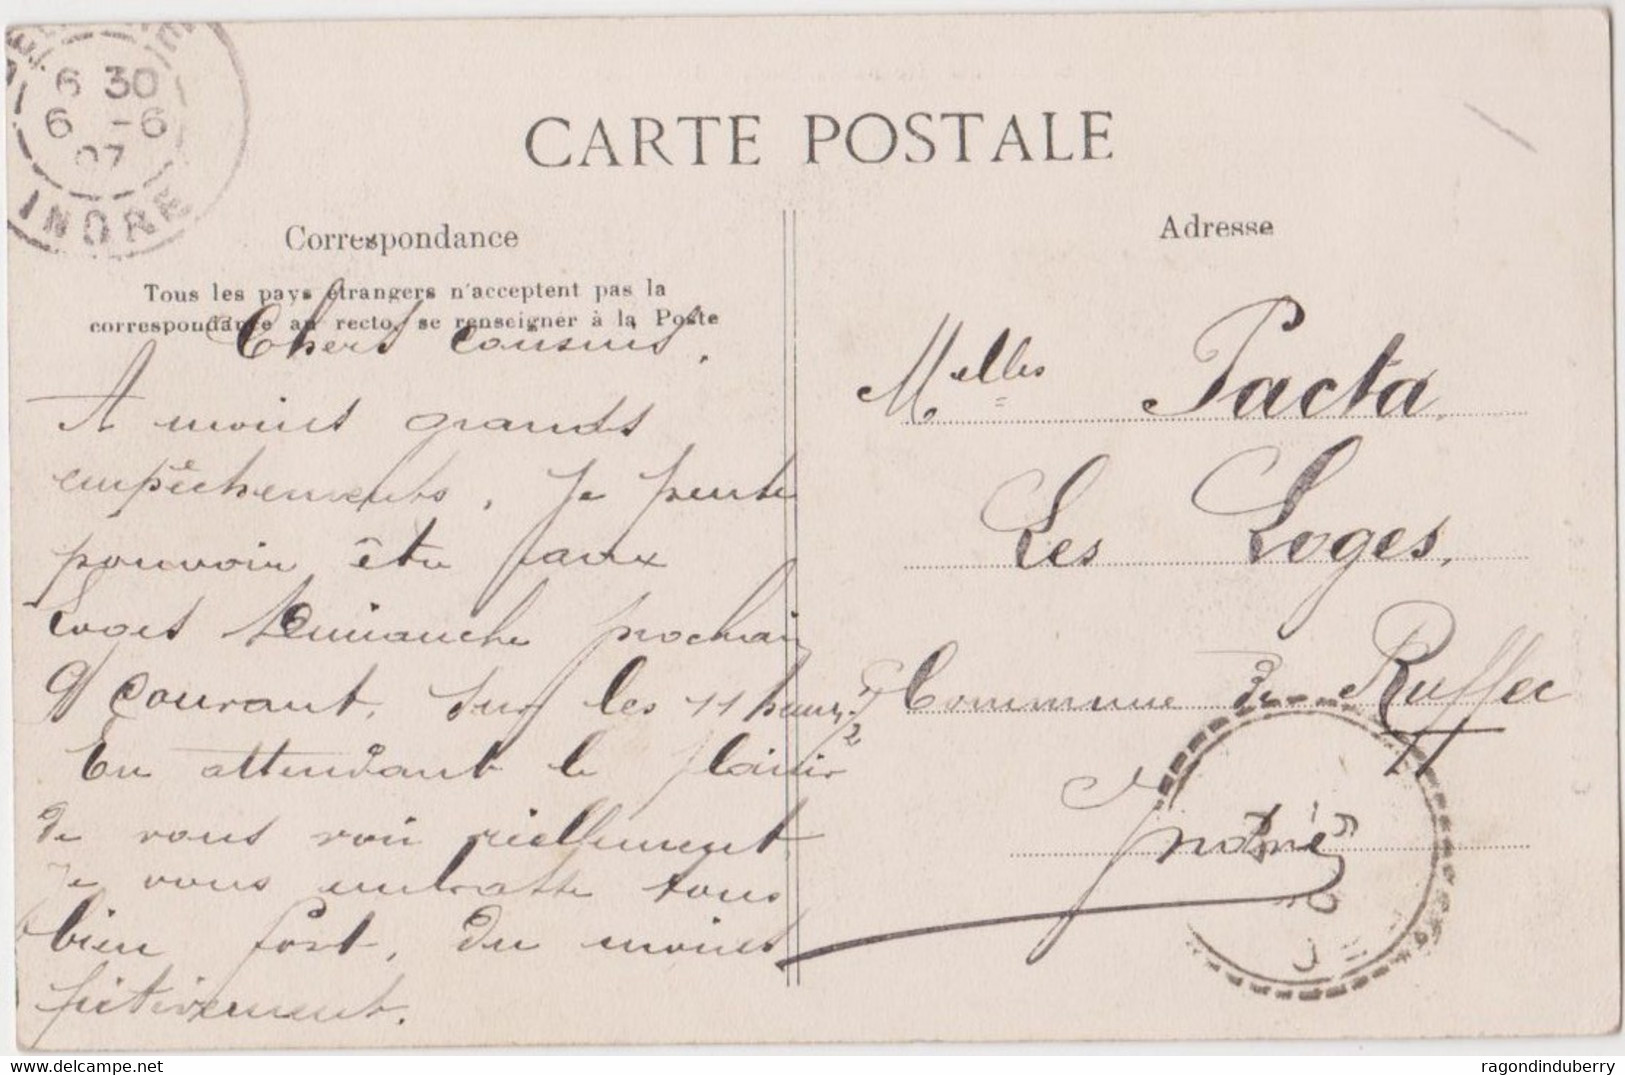 6 30
6 -6
07
INDRE
CARTE POSTALE
Correspondance
Tous les pays étrangers n'acceptent pas la
correspondance au recto, se renseigner à la Poste
Chers cousins,
A moins grands
empêchements, je pense
pouvoir être faux
Loges Dimanche prochain
9 courant, sur les 11 heures 1/2
En attendant le plaisir
de vous voir réellement
Je vous embrasse tous
bien fort, du moins
fictivement.
Adresse
Melles Pacta
Les Loges,
Commune de Ruffec
Indre
ragondinduberry